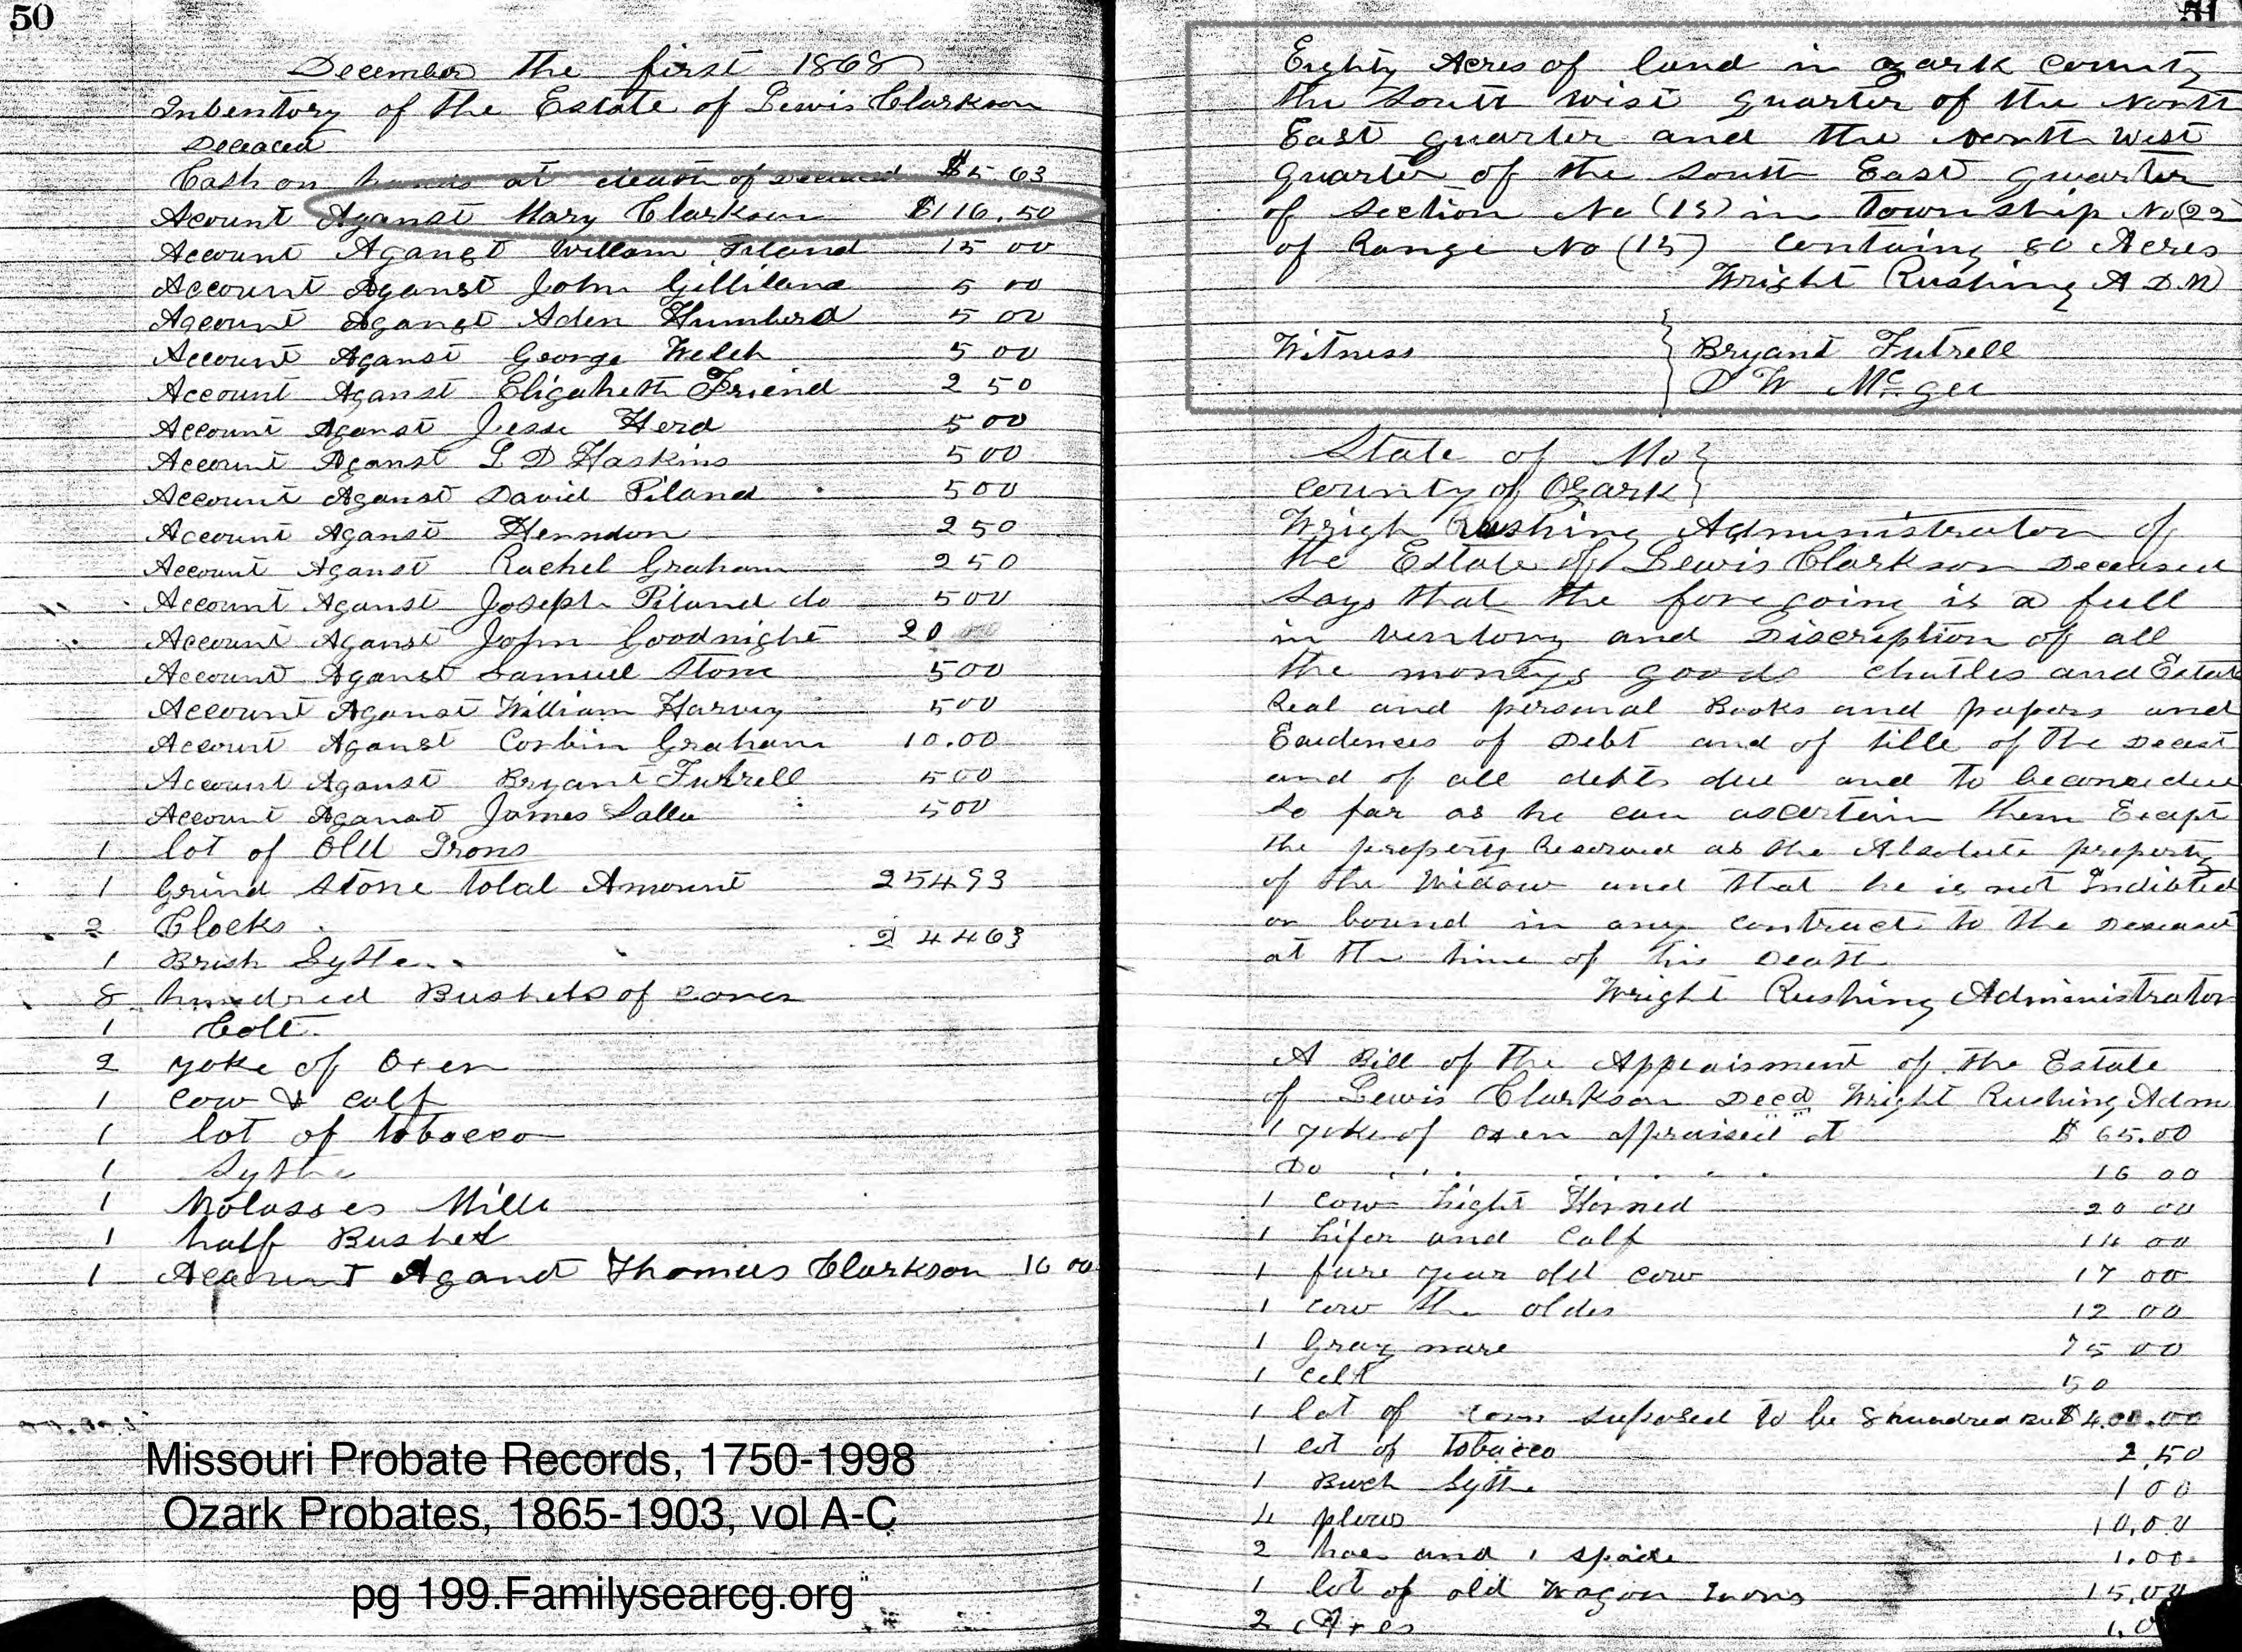 50
December the first 1868
Inbentory of the Estate of Lewis Clarkson
Deceaced
Cash on hands at death of Deceaced $5 63
Acount Aganst Mary Clarkson $116.50
Account Aganst Willam Piland 15 00
Account Aganst John Gilliland 5 00
Account Aganst Aden Humberd 5 00
Account Aganst George Welch 5 00
Account Aganst Elizabeth Friend 2 50
Account Aganst Jesse Herd 5 00
Account Aganst L D Haskins 5 00
Account Aganst David Piland 5 00
Account Aganst Hernndon 2 50
Account Aganst Rachel Graham 2 50
Account Aganst Joseph Piland do 5 00
Account Aganst John Goodnight 20 00
Account Aganst Samuel Stone 5 00
Account Aganst William Harvey 5 00
Account Aganst Corbin Graham 10.00
Account Aganst Bryant Futrell 5 00
Account Aganst James 5 00
1 lot of Old Irons
1 Grind Stone total Amount 254 93
2 Clocks
244 63
1 Brish Sythe
8 hundred Bushels of corn
1 Colt
2 yoke of Oxen
1 Cow & calf
1 lot of tobacco
1 Sythe
1 Molasses Mill
1 half Bushel
1 Account Aganst Thomas Clarkson 16 00
Missouri Probate Records, 1750-1998
Ozark Probates, 1865-1903, vol A-C
pg 199.Familysearcg.org
51
Eighty Acres of land in ozark County
the South west quarter of the North
East quarter and the North West
quarter of the South East quarter
of Section No (15) in Township No (22
of Range No (15) Containg 80 Acres
Wright Rushing A D M
Witness } Bryant Futrell
D W McGee
State of Mo }
County of Ozark }
Wrigh Rushing Administrator of
the Estate of Lewis Clarkson Deceased
Says that the fore going is a full
in ventory and Discription of all
the moneys goods chattles and Estate
Real and personal Books and papers and
Evidences of Debt and of title of the Deceast
and of all debts due and to become due
So far as he can ascertain them Except
the property Reserved as the Absolute property
of the Widow and that he is not Indibted
or bound in any contract to the Deceast
at the time of his Death
Wright Rushing Administrator
A Bill of the Appraisment of the Estate
of Lewis Clarkson Decd Wright Rushing Adm
1 yoke of oxen appraised at $ 65.00
Do 16 00
1 cow hight Horned 20 00
1 hifer and Calf 14 00
1 fure year old cow 17 00
1 cow the oldes 12 00
1 Gray mare 75 00
1 Colt 50
1 lot of corn suposed to be 8 hundred Bu $400.00
1 lot of tobacco 2.50
1 Buch Sythe 1 00
4 plows 10.00
2 hoes and 1 spade 1.00
1 lot of old Wagon Irons 15.00
2 Axes